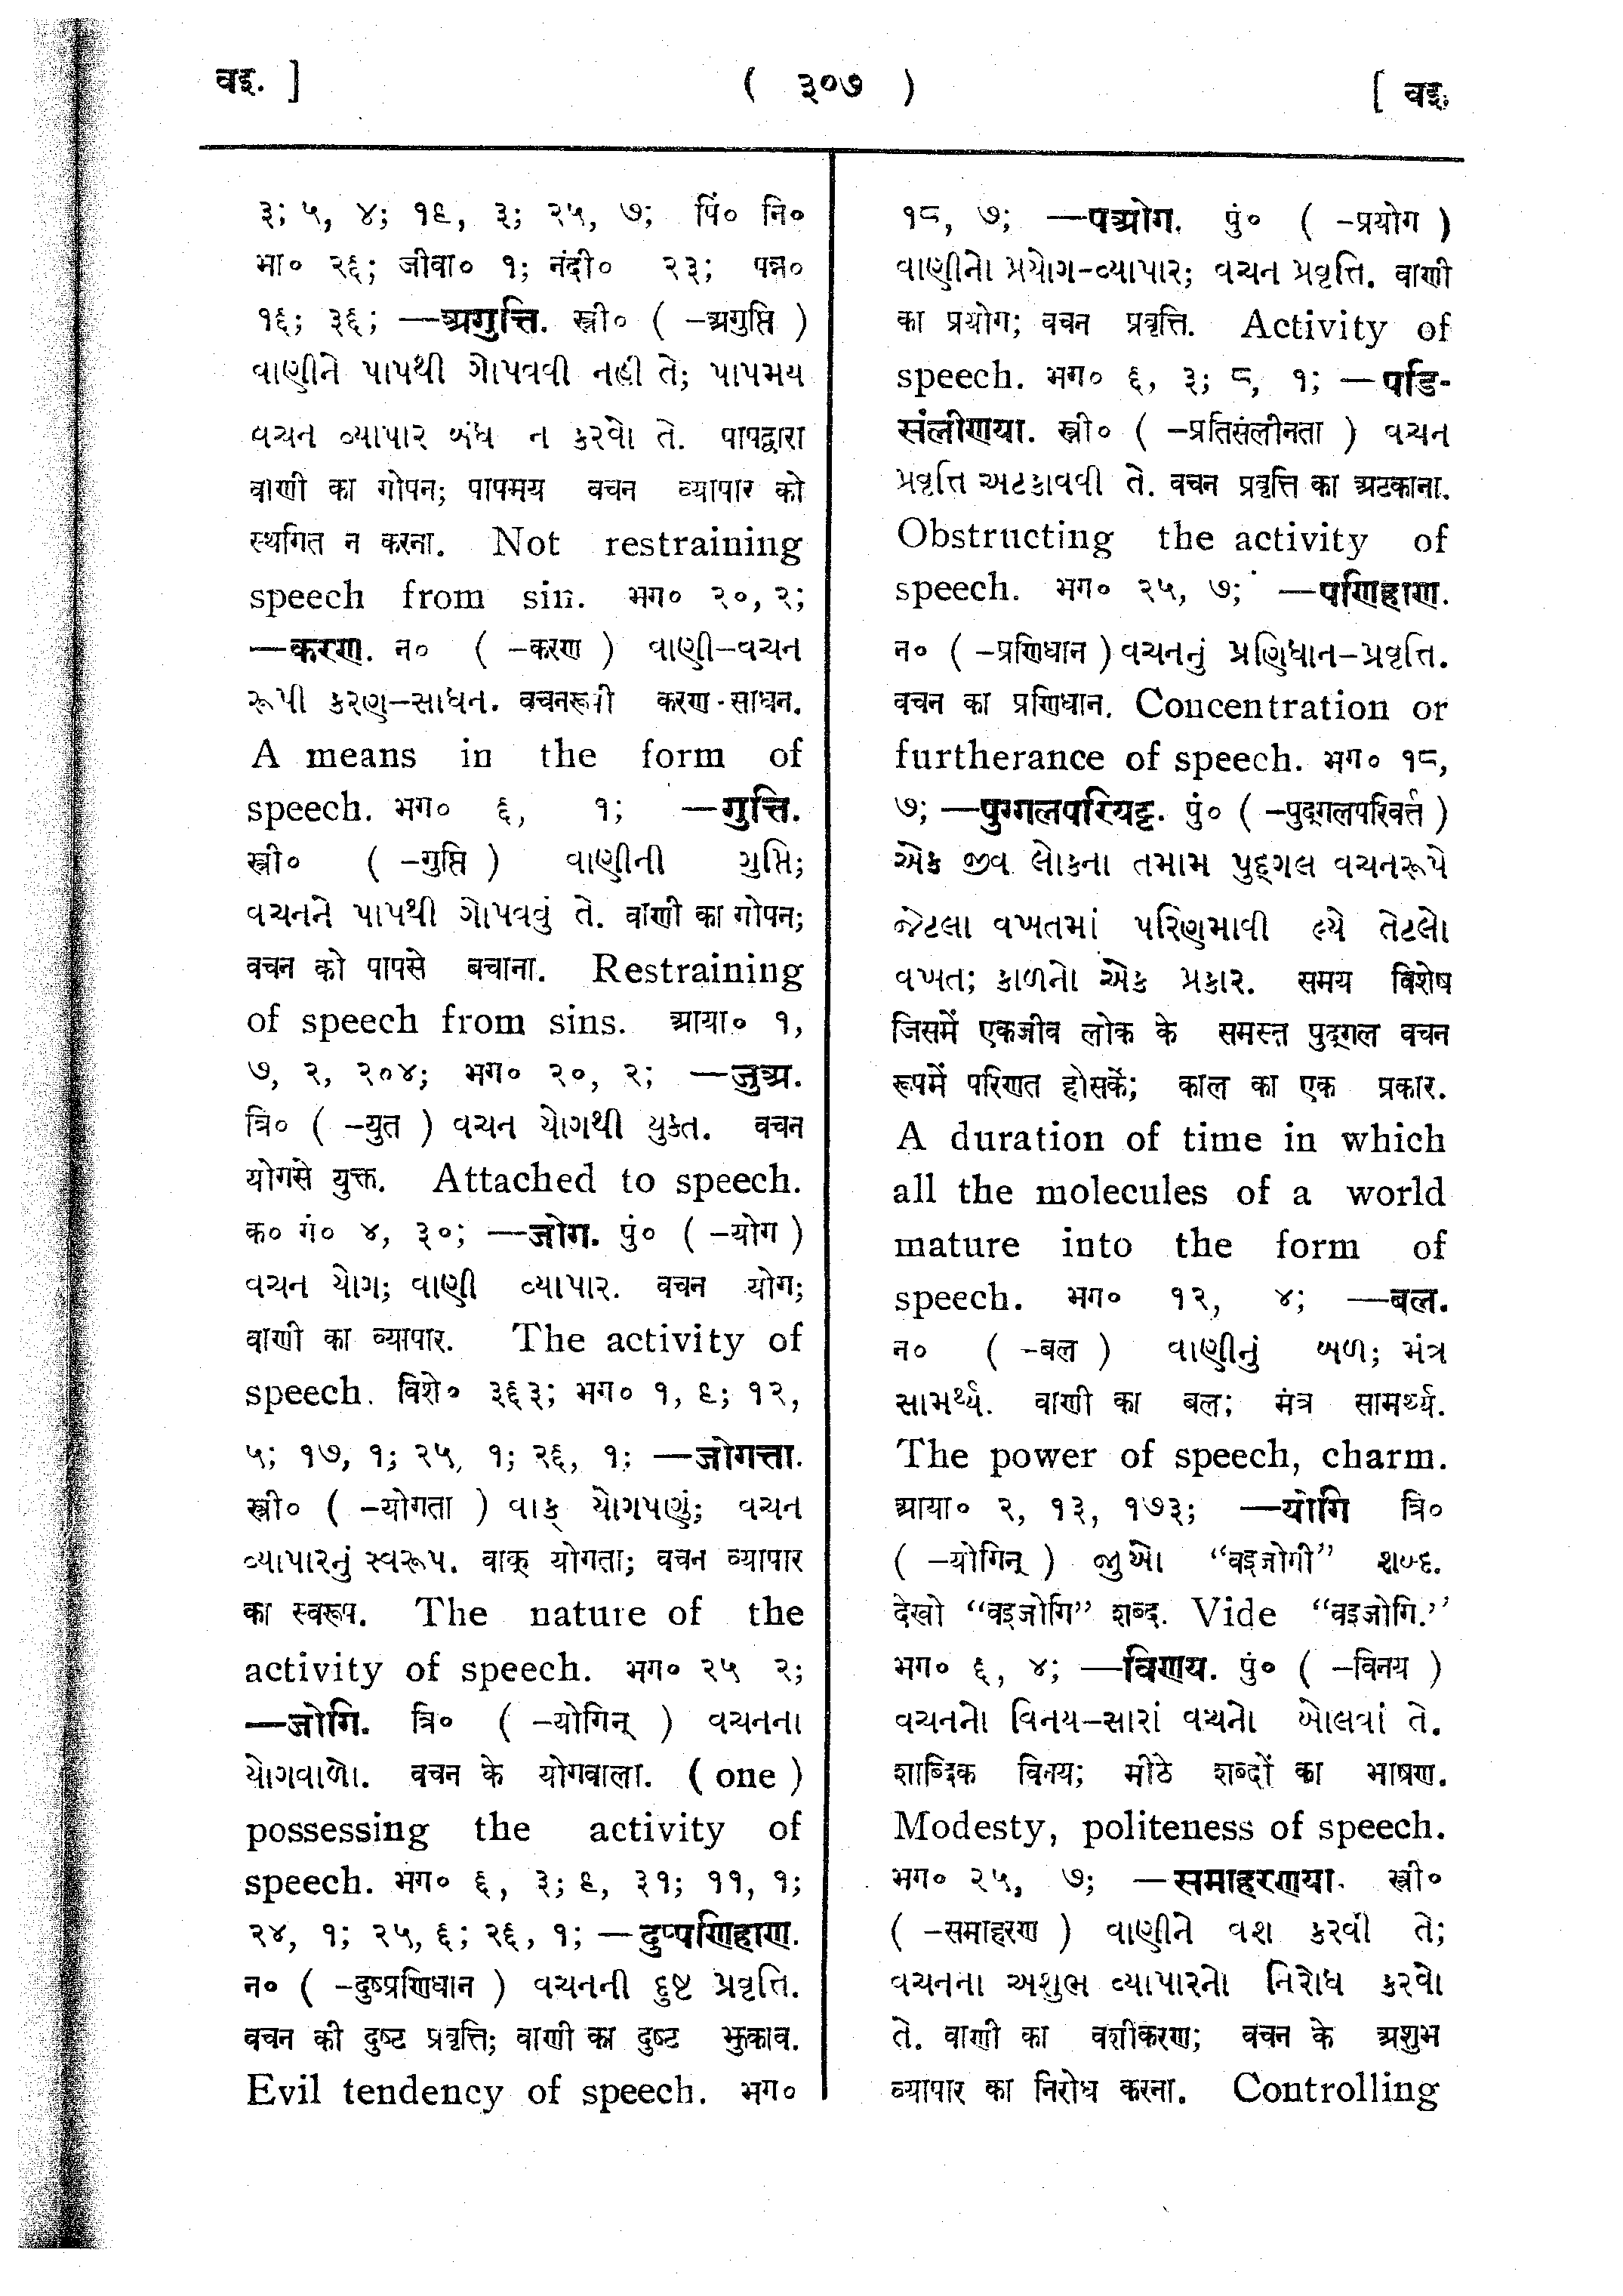 वइ. ]
( ३०७ )
[ वइ.
३; ५, ४; १६, ३; २५, ७; पिं० नि०
भा० २६; जीवा० १; नंदी० २३; पन्न०
१६; ३६; —अगुत्ति. स्त्री० ( -अगुप्ति )
વાણીને પાપથી ગોપવવી નહી તે; પાપમય
વચન વ્યાપાર બંધ ન કરવો તે. पापद्वारा
वाणी का गोपन; पापमय वचन व्यापार को
स्थगित न करना. Not restraining
speech from sin. भग० २०, २;
—करण. न० ( -करण ) વાણી-વચન
રૂપી કરણ-સાધન. वचनरूपी करण-साधन.
A means in the form of
speech. भग० ६, १; —गुत्ति.
स्त्री० ( -गुप्ति ) વાણીની ગુપ્તિ;
વચનને પાપથી ગોપવવું તે. वाणी का गोपन;
वचन को पापसे बचाना. Restraining
of speech from sins. आया० १,
७, २, २०४; भग० २०, २; —जुअ.
त्रि० ( -युत ) વચન યોગથી યુક્ત. वचन
योगसे युक्त. Attached to speech.
क० गं० ४, ३०; —जोग. पुं० ( -योग )
વચન યોગ; વાણી વ્યાપાર. वचन योग;
वाणी का व्यापार. The activity of
speech. विशे० ३६३; भग० १, ६; १२,
५; १७, १; २५, १; २६, १; —जोगत्ता.
स्त्री० ( -योगता ) વાક્ યોગપણું; વચન
વ્યાપારનું સ્વરૂપ. वाक् योगता; वचन व्यापार
का स्वरूप. The nature of the
activity of speech. भग० २५ २;
—जोगि. त्रि० ( -योगिन् ) વચનના
યોગવાળો. वचन के योगवाला. ( one )
possessing the activity of
speech. भग० ६, ३; ६, ३१; ११, १;
२४, १; २५, ६; २६, १; —दुप्पणिहाण.
न० ( -दुष्प्रणिधान ) વચનની દુષ્ટ પ્રવૃત્તિ.
वचन की दुष्ट प्रवृत्ति; वाणी का दुष्ट झुकाव.
Evil tendency of speech. भग०
१८, ७; —पओग. पुं० ( -प्रयोग )
વાણીનો પ્રયોગ-વ્યાપાર; વચન પ્રવૃત્તિ. वाणी
का प्रयोग; वचन प्रवृत्ति. Activity of
speech. भग० ६, ३; ८, १; —पडि-
संलीणया. स्त्री० ( -प्रतिसंलीनता ) વચન
પ્રવૃત્તિ અટકાવવી તે. वचन प्रवृत्ति का अटकाना.
Obstructing the activity of
speech. भग० २५, ७; —पणिहाण.
न० ( -प्रणिधान ) વચનનું પ્રણિધાન-પ્રવૃત્તિ.
वचन का प्रणिधान. Concentration or
furtherance of speech. भग० १८,
७; —पुग्गलपरियट्ट. पुं० ( -पुद्गलपरिवर्त्त )
એક જીવ લોકના તમામ પુદ્ગલ વચનરૂપે
જેટલા વખતમાં પરિણમાવી લ્યે તેટલો
વખત; કાળનો એક પ્રકાર. समय विशेष
जिसमें एकजीव लोक के समस्त पुद्गल वचन
रूपमें परिणत होसकें; काल का एक प्रकार.
A duration of time in which
all the molecules of a world
mature into the form of
speech. भग० १२, ४; —बल.
न० ( -बल ) વાણીનું બળ; મંત્ર
સામર્થ્ય. वाणी का बल; मंत्र सामर्थ्य.
The power of speech, charm.
आया० २, १३, १७३; —योगि त्रि०
( -योगिन् ) જુઓ “वइजोगी” શબ્દ.
देखो “वइजोगि” शब्द. Vide “वइजोगि.”
भग० ६, ४; —विणय. पुं० ( -विनय )
વચનનો વિનય-સારાં વચનો બોલવાં તે.
शाब्दिक विनय; मीठे शब्दों का भाषण.
Modesty, politeness of speech.
भग० २५, ७; —समाहरणया. स्त्री०
( -समाहरण ) વાણીને વશ કરવી તે;
વચનના અશુભ વ્યાપારનો નિરોધ કરવો
તે. वाणी का वशीकरण; वचन के अशुभ
व्यापार का निरोध करना. Controlling